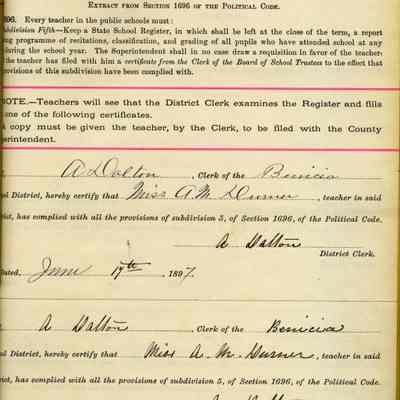 EXTRACT FROM SECTION 1696 OF THE POLITICAL CODE.
696. Every teacher in the public schools must:
ubdivision Fifth—Keep a State School Register, in which shall be left at the close of the term, a report
ng programme of recitations, classification, and grading of all pupils who have attended school at any
during the school year. The Superintendent shall in no case draw a requisition in favor of the teacher
the teacher has filed with him a certificate from the Clerk of the Board of School Trustees to the effect that
rovisions of this subdivision have been complied with.
NOTE.—Teachers will see that the District Clerk examines the Register and fills
one of the following certificates.
copy must be given the teacher, by the Clerk, to be filed with the County
perintendent.
A Dalton, Clerk of the Benicia
ol District, hereby certify that Miss A. M. Durner, teacher in said
rict, has complied with all the provisions of subdivision 5, of Section 1696, of the Political Code.
A Dalton
District Clerk.
Dated, June 17th, 1897.
A Dalton, Clerk of the Benicia
ol District, hereby certify that Miss A. M. Durner, teacher in said
rict, has complied with all the provisions of subdivision 5, of Section 1696, of the Political Code.